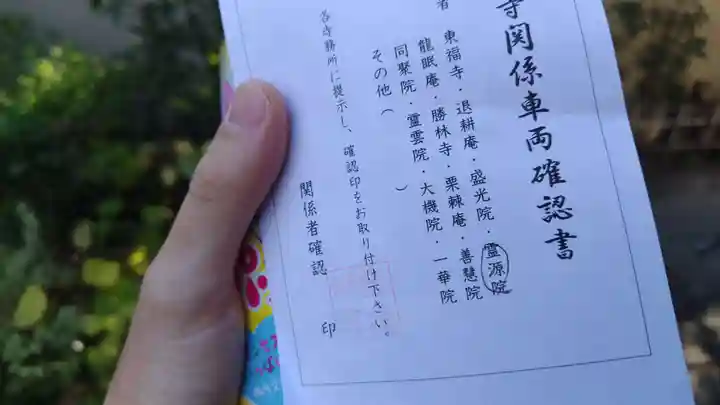 寺関係車両確認書
者 東福寺・退耕庵・盛光院・霊源院
龍眠庵・勝林寺・栗棘庵・善慧院
同聚院・霊雲院・大機院・一華院
その他（　　　）
各寺務所に提示し、確認印をお取り付け下さい。
関係者確認 印